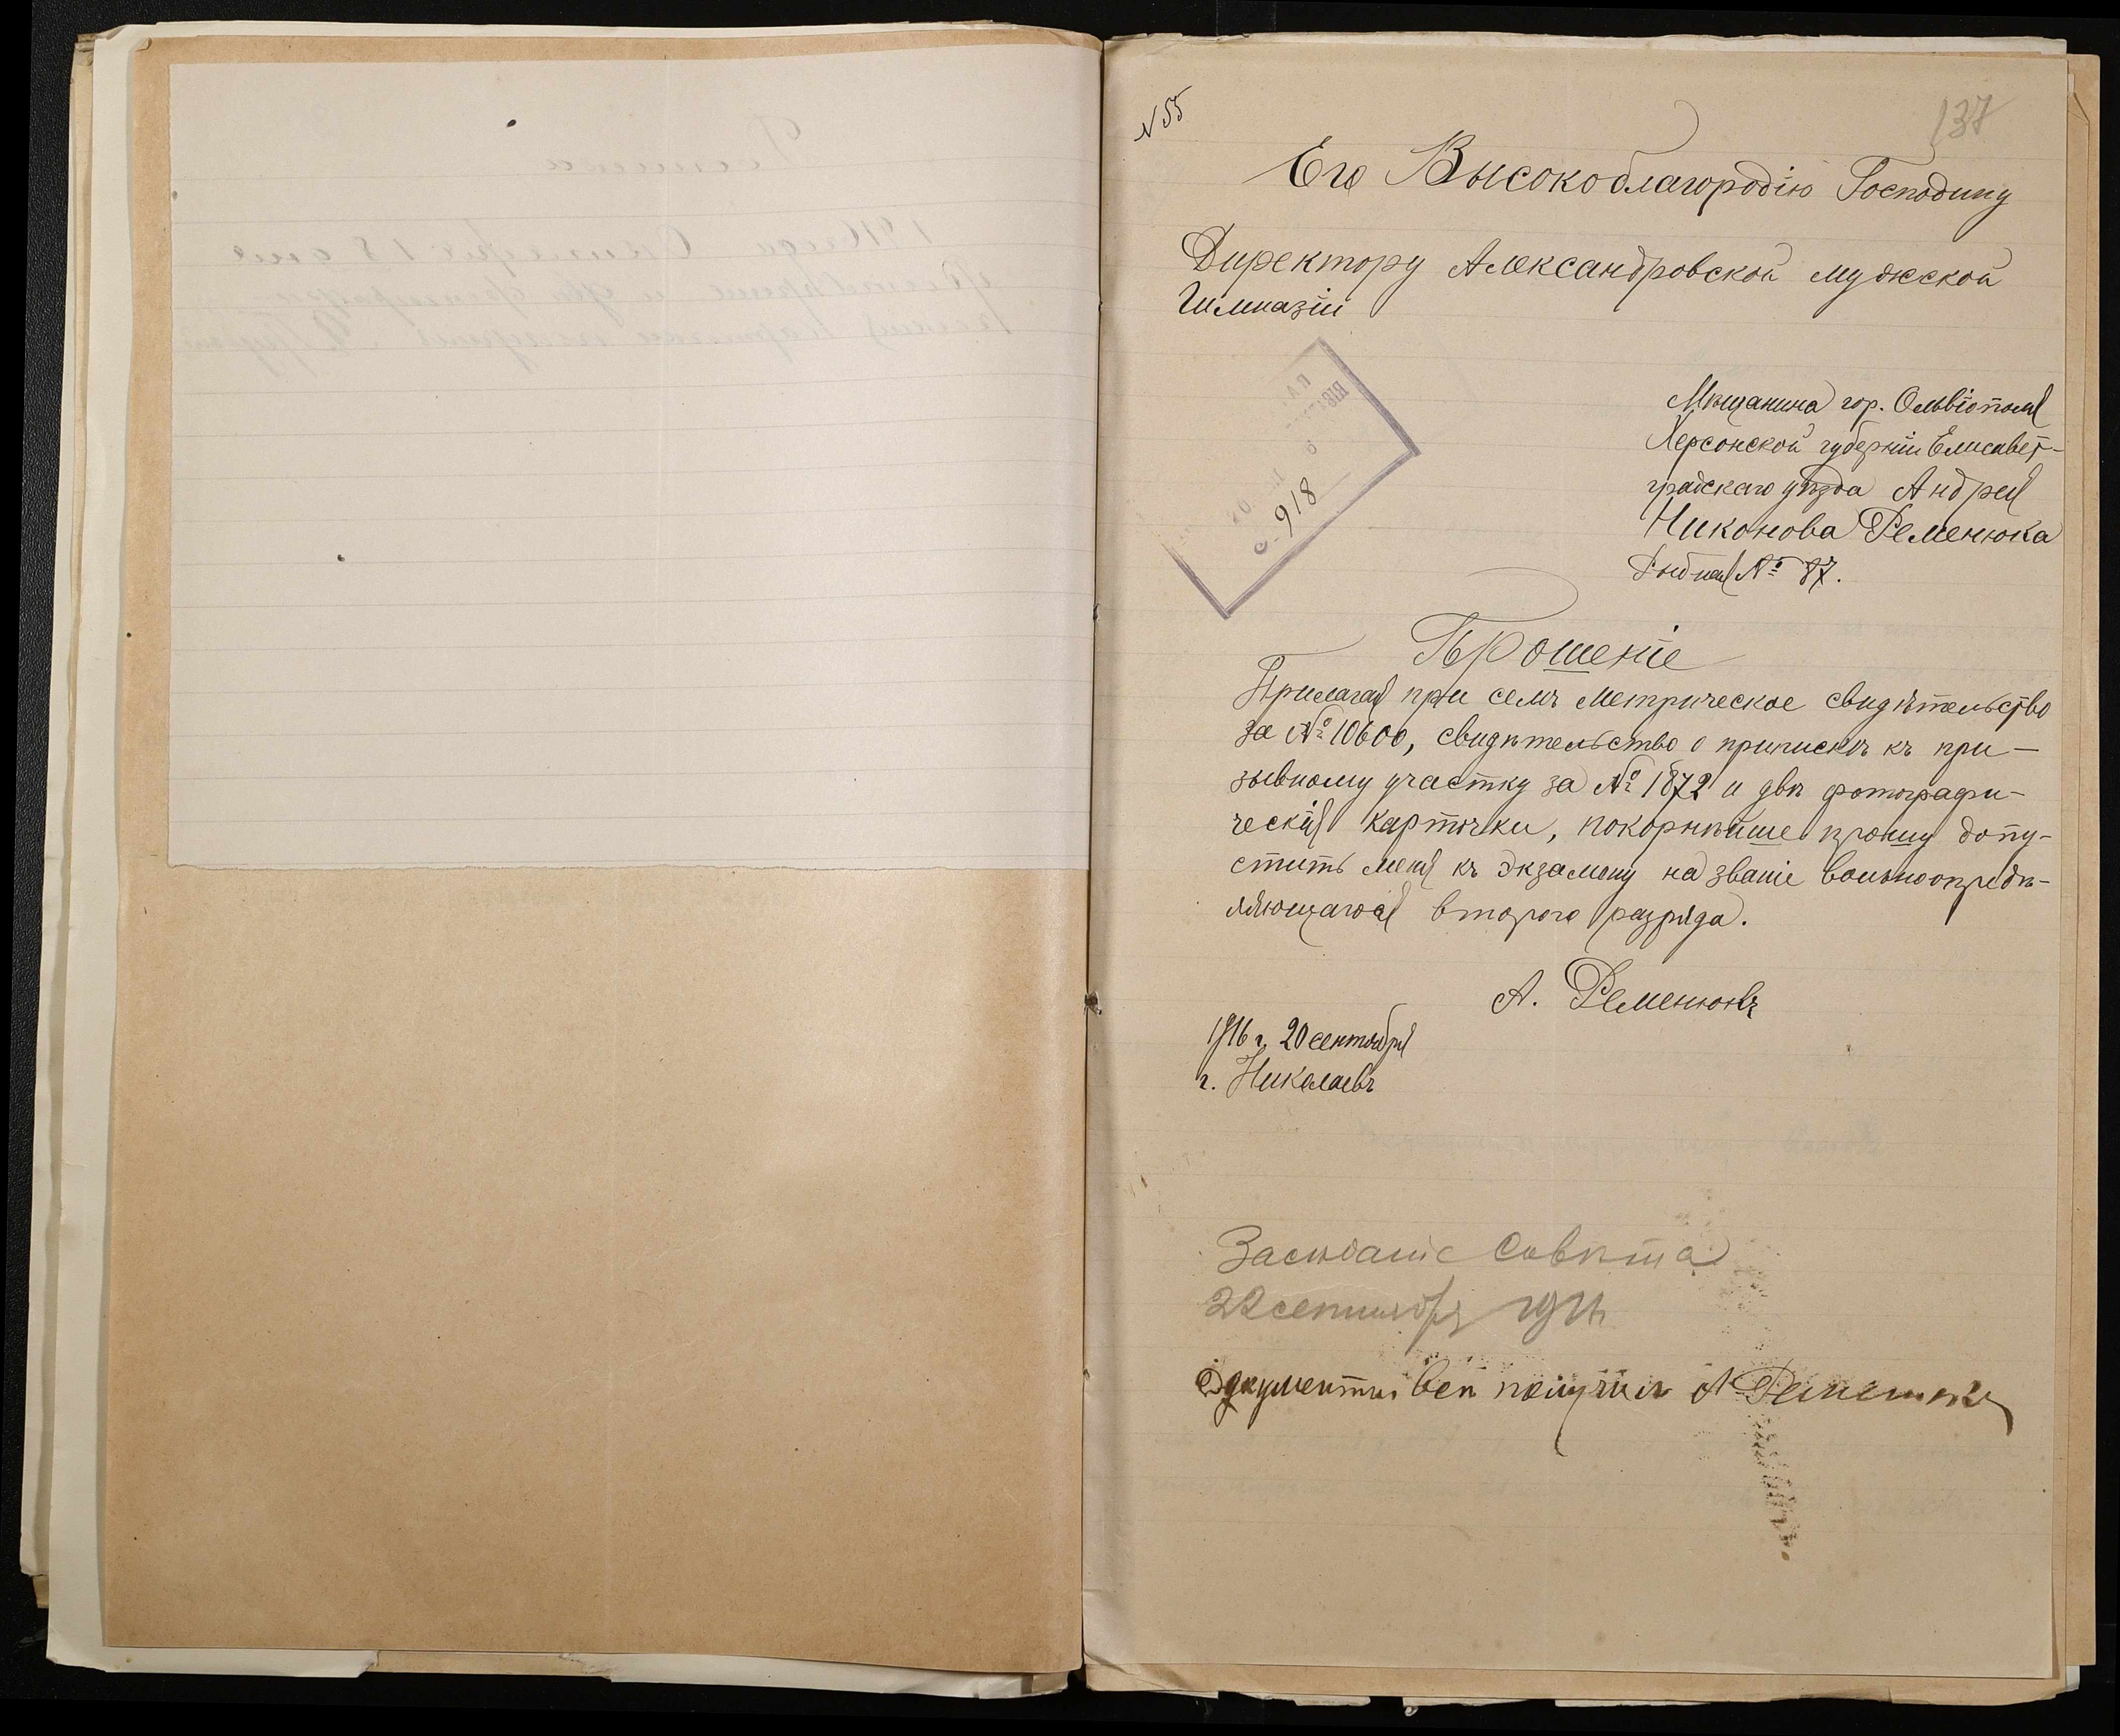 N 55
137
Его Высокоблагородію Господину
Директору Александровской мужской
Гимназіи
Мѣщанина гор. Ольвіополя
Херсонской губерніи Елисавет-
градскаго уѣзда Андрея
Никонова Ременюка
Рыбная № 87.
918
Прошеніе
Прилагая при семъ метрическое свидѣтельство
за № 10600, свидѣтельство о припискѣ къ при-
зывному участку за № 1872 и двѣ фотографи-
ческія карточки, покорнѣйше прошу допу-
стить меня къ экзамену на званіе вольноопредѣ-
ляющагося второго разряда.
А. Ременюкъ
1916 г. 20 сентября
г. Николаевъ
Засѣданіе Совѣта
22 сентября 1916
Документы всѣ получилъ А Ременюкъ